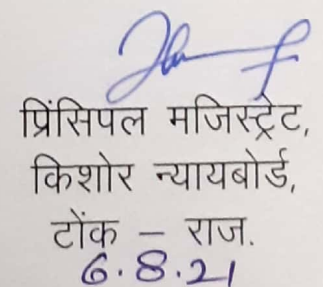 प्रिंसिपल मजिस्ट्रेट,
किशोर न्यायबोर्ड,
टोंक – राज.
6.8.21